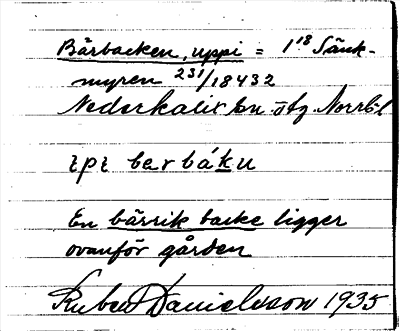 Bärbacken, uppi = 1¹⁸ Sänk-
myren 231/18432
Nederkalix sn. ötg. Norrb. l
ɩpɩ bærbáku
En bärrik backe ligger
ovanför gården
Ruben Danielsson 1935